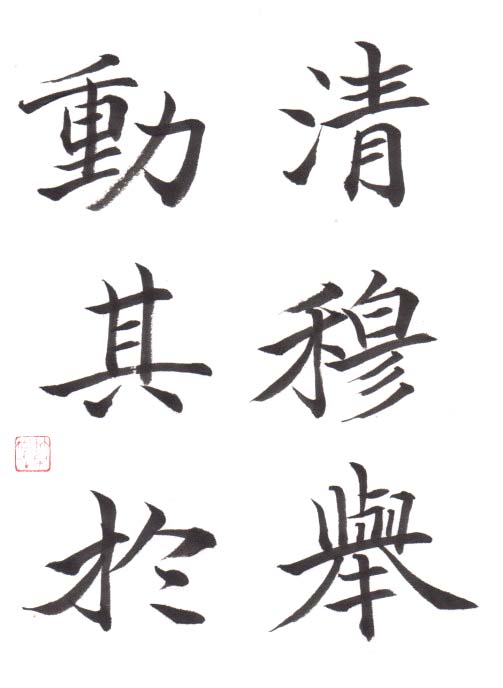 清穆舉
動其於